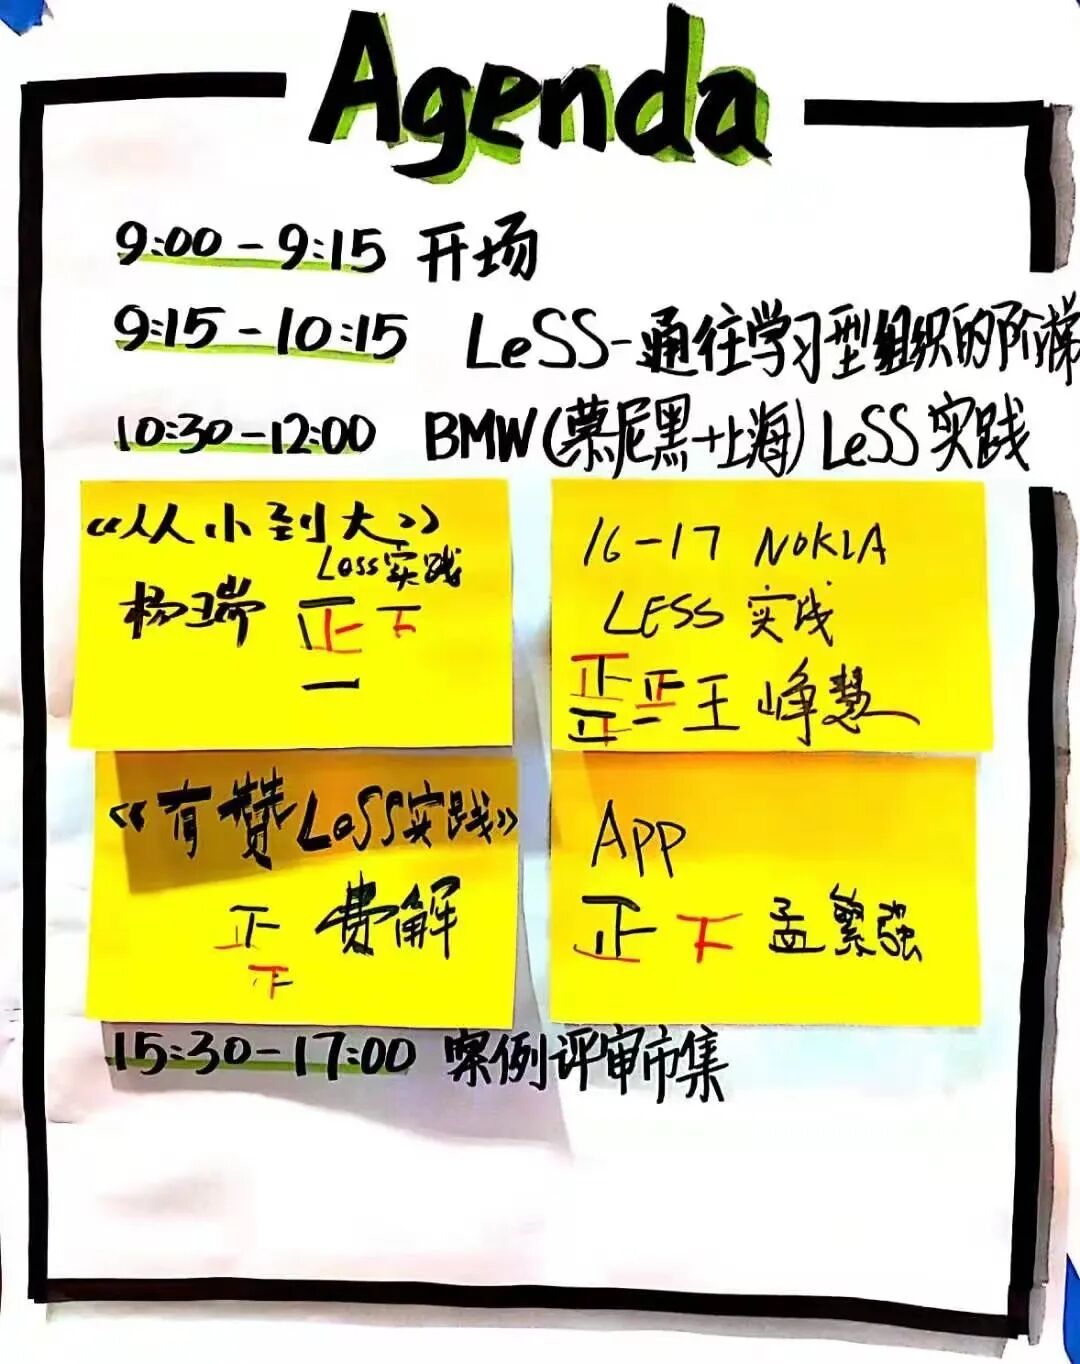 Agenda
9:00-9:15 开场
9:15-10:15 LeSS-通往学习型组织的阶梯
10:30-12:00 BMW(慕尼黑+上海)LeSS实践
《从小到大》
LeSS实践
杨瑞 正下
一
16-17 NOKIA
LESS 实践
正正王峥慧
正一
《有赞LeSS实践》
正 费解
下
APP
正下 孟繁强
15:30-17:00 案例评审市集